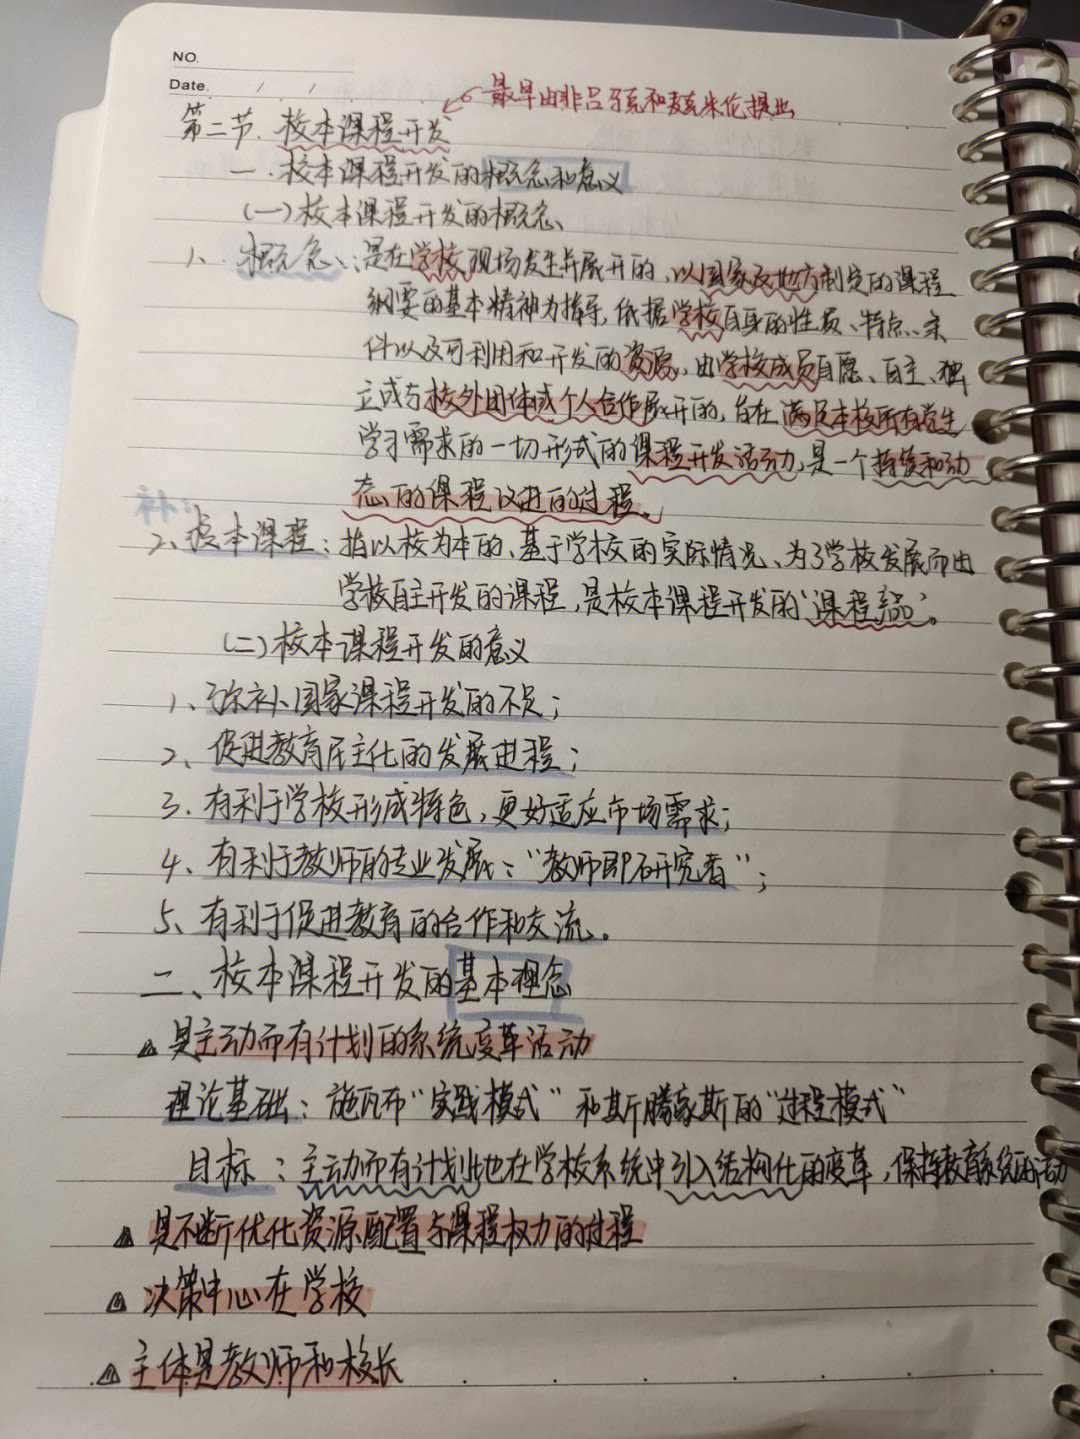 NO.
Date. / /
最早由菲吕马克和麦克米伦提出
第二节. 校本课程开发
一. 校本课程开发的概念和意义
(一)校本课程开发的概念、
1、概念、:是在学校现场发生并展开的、以国家及地方制定的课程
纲要的基本精神为指导,依据学校自身的性质、特点、条
件以及可利用和开发的资源、由学校成员自愿、自主、独
立或与校外团体或个人合作展开的,旨在满足本校所有学生
学习需求的一切形式的课程开发活动,是一个持续和动
态的课程改进的过程。
2、校本课程:指以校为本的、基于学校的实际情况、为了学校发展而由
学校自主开发的课程,是校本课程开发的“课程产品”。
(二)校本课程开发的意义
1、弥补国家课程开发的不足;
2、促进教育民主化的发展进程;
3.有利于学校形成特色,更好适应市场需求;
4、有利于教师的专业发展:“教师即研究者”;
5、有利于促进教育的合作和交流。
二、校本课程开发的基本理念
△是主动而有计划的系统变革活动
理论基础:施瓦布“实践模式”和斯腾豪斯的“过程模式”
目标:主动而有计划地在学校系统中引入结构化的变革,保持教育系统的活动
△是不断优化资源配置与课程权力的过程
△决策中心在学校
△主体是教师和校长